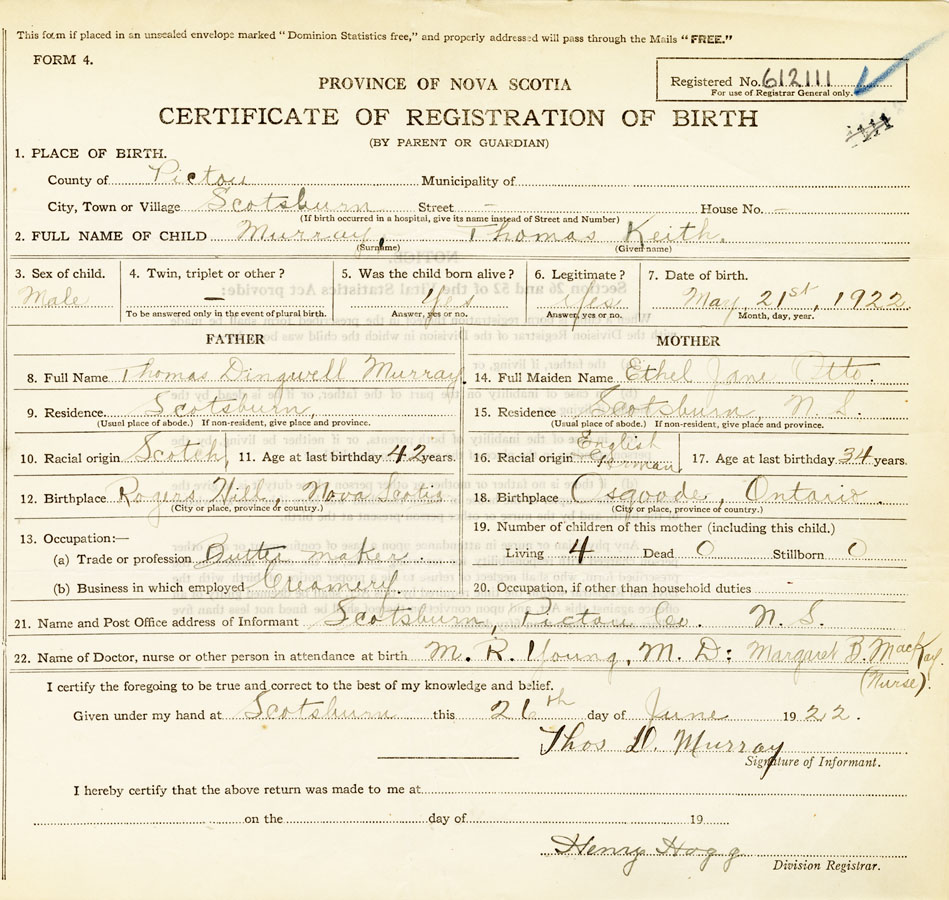 This form if placed in an unsealed envelope marked "Dominion Statistics free," and properly addressed will pass through the Mails "FREE."
FORM 4.
Registered No. 612111
For use of Registrar General only.
PROVINCE OF NOVA SCOTIA
CERTIFICATE OF REGISTRATION OF BIRTH
(BY PARENT OR GUARDIAN)
1. PLACE OF BIRTH.
County of Pictou Municipality of
City, Town or Village Scotsburn Street - House No. -
(If birth occurred in a hospital, give its name instead of Street and Number)
2. FULL NAME OF CHILD Murray, Thomas Keith.
(Surname) (Given name)
3. Sex of child. 4. Twin, triplet or other? 5. Was the child born alive? 6. Legitimate? 7. Date of birth.
Male - Yes Yes May 21st, 1922
To be answered only in the event of plural birth. Answer, yes or no. Answer, yes or no. Month, day, year.
FATHER MOTHER
8. Full Name Thomas Dingwell Murray 14. Full Maiden Name Ethel Jane Otto.
9. Residence Scotsburn, 15. Residence Scotsburn, N. S.
(Usual place of abode.) If non-resident, give place and province. (Usual place of abode.) If non-resident, give place and province.
10. Racial origin Scotch 11. Age at last birthday 42 years. 16. Racial origin English German 17. Age at last birthday 34 years.
12. Birthplace Rogers Hill, Nova Scotia 18. Birthplace Osgoode, Ontario.
(City or place, province or country.) (City or place, province or country.)
13. Occupation:— 19. Number of children of this mother (including this child.)
(a) Trade or profession Butter maker. Living 4 Dead 0 Stillborn 0
(b) Business in which employed Creamery. 20. Occupation, if other than household duties -
21. Name and Post Office address of Informant Scotsburn, Pictou Co. N. S.
22. Name of Doctor, nurse or other person in attendance at birth M. R. Young, M. D: Margaret B. MacKay.
(Nurse).
I certify the foregoing to be true and correct to the best of my knowledge and belief.
Given under my hand at Scotsburn this 26th day of June 1922.
Thos D. Murray
Signature of Informant.
I hereby certify that the above return was made to me at
on the day of 19
Henry Hogg
Division Registrar.